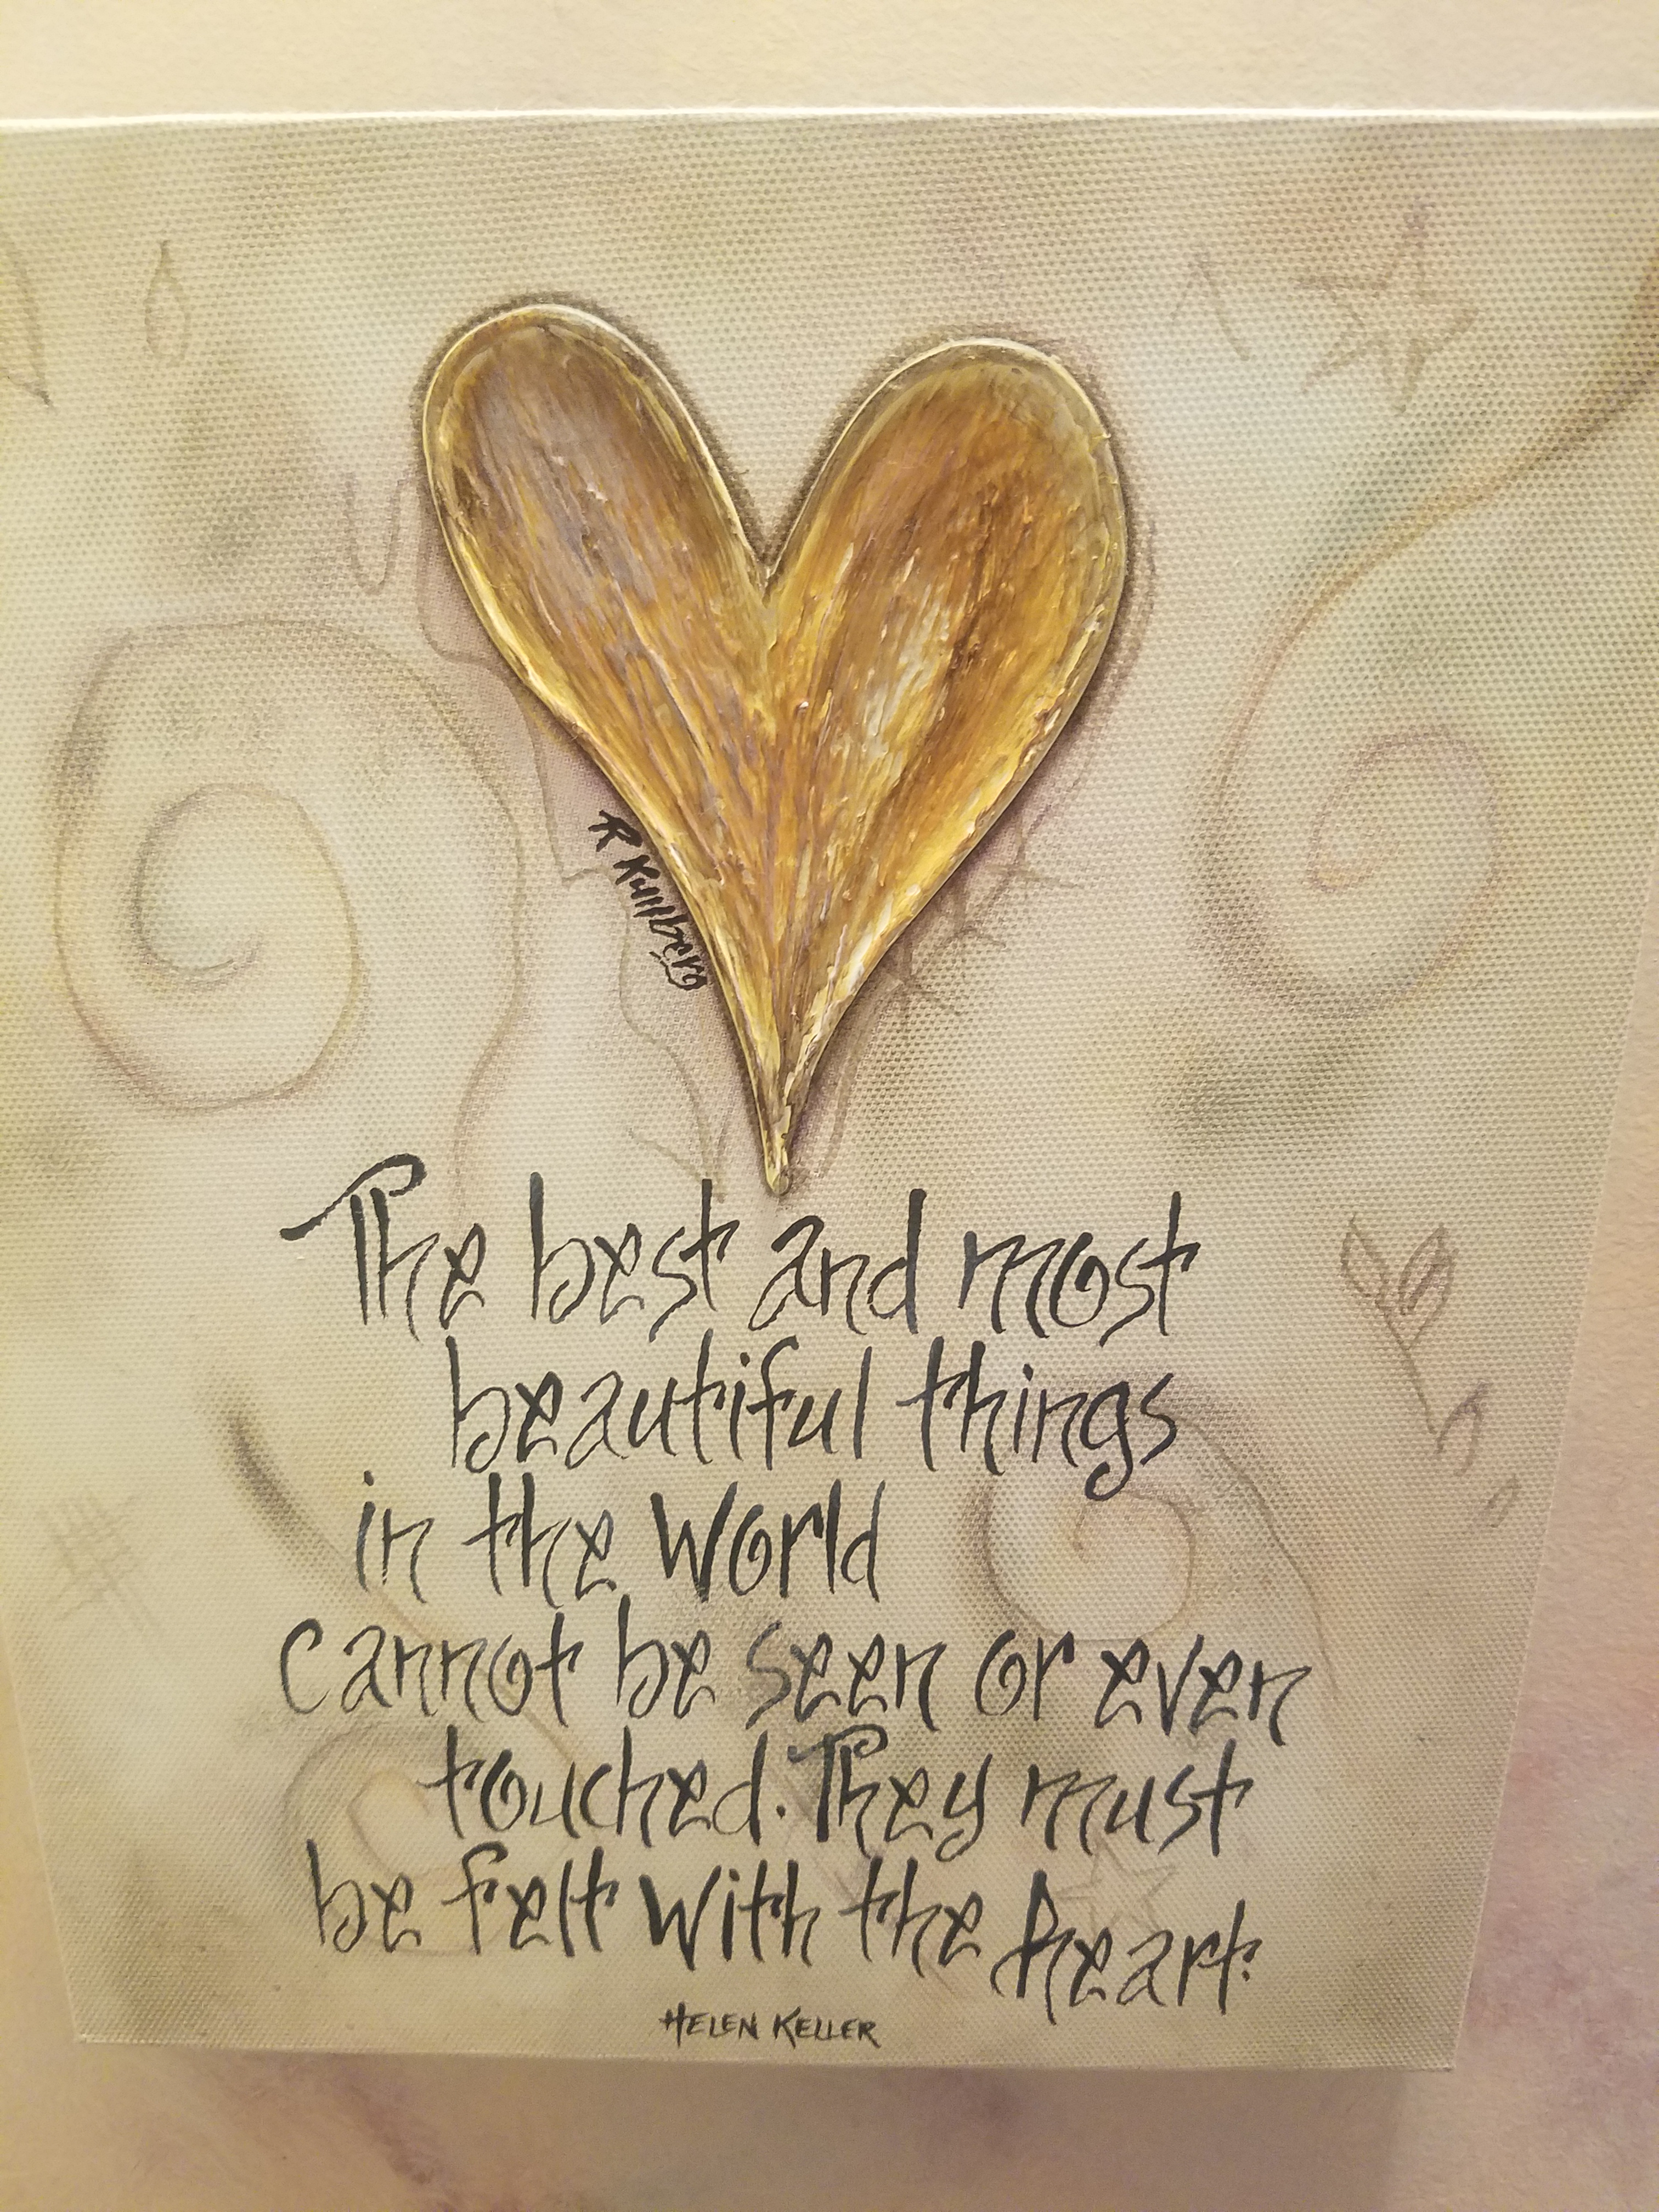 The best and most
beautiful things
in the World
cannot be seen or even
touched. They must
be felt with the heart.
HELEN KELLER